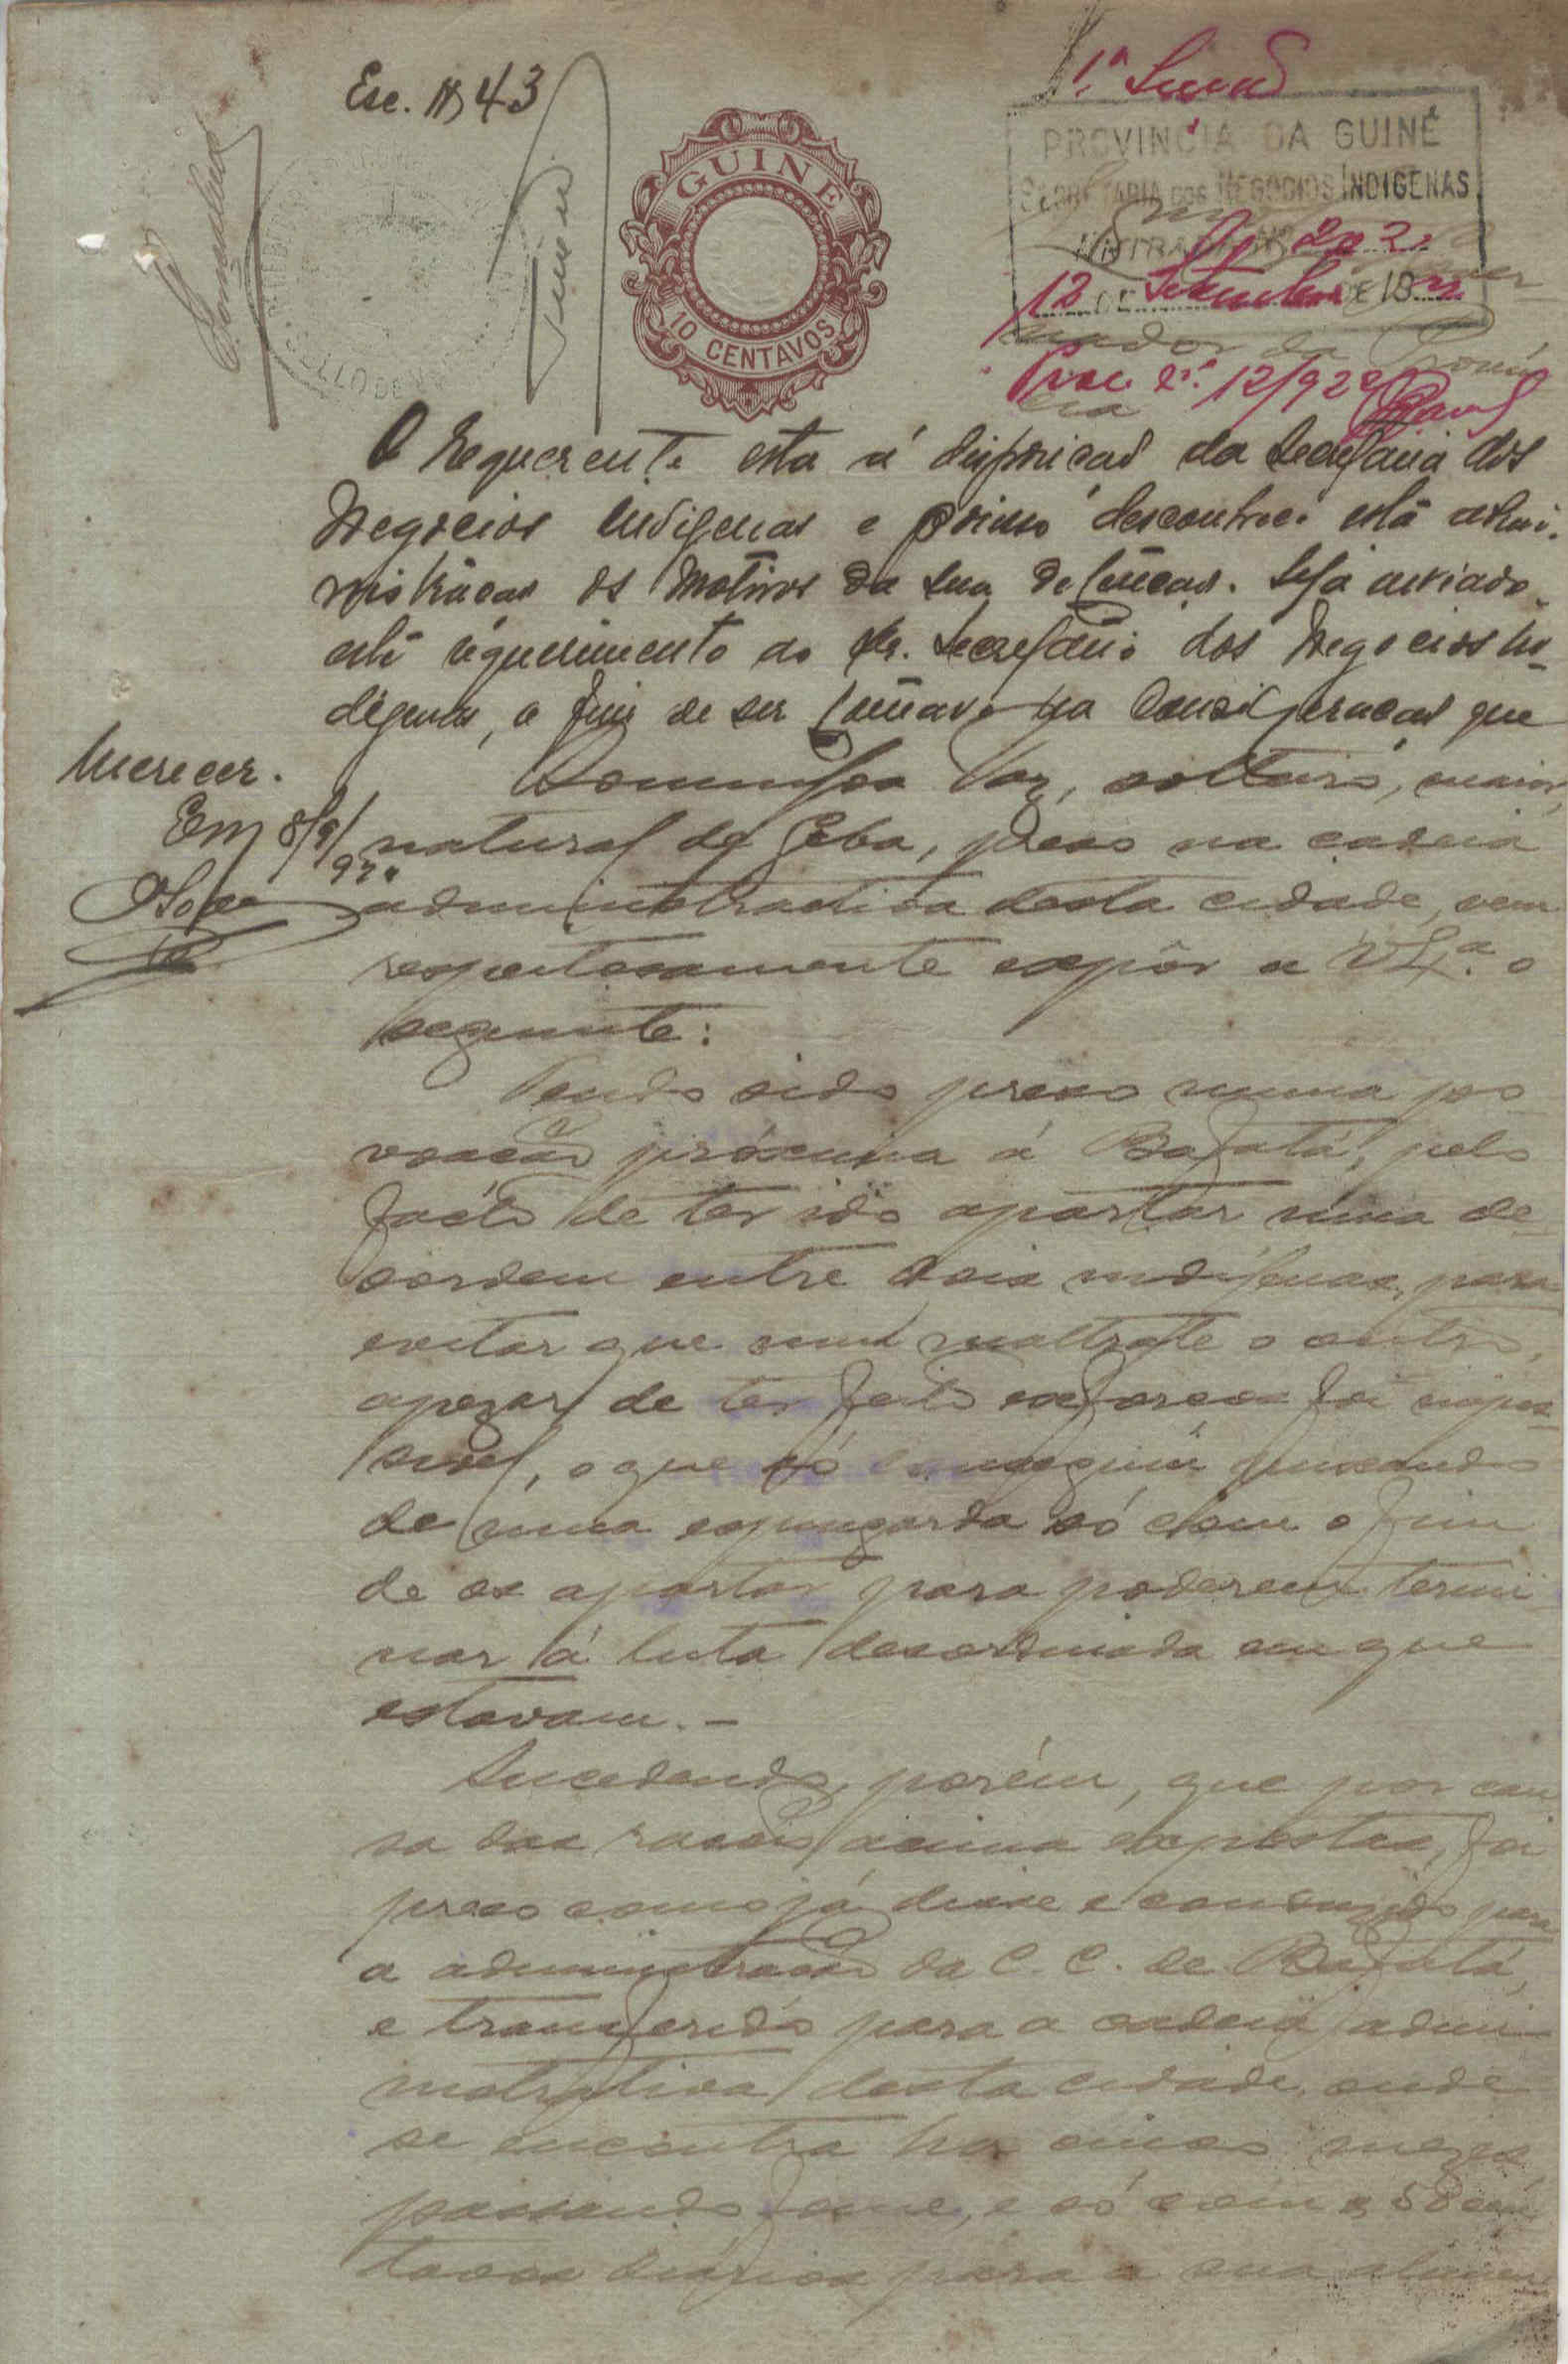 Esc. 43
GUINÉ
10 CENTAVOS
1ª
PROVINCIA DA GUINÉ
SECRETARIA DOS NEGOCIOS INDIGENAS
ENTRADA Nº 202
12 DE Setembro DE 19 22
nador da Provin
cia
Proc. nº 12/922
O requerente esta á disposição da Secretaria dos
Negocios Indigenas e por isso desconhece esta admi-
nistração os motivos da sua detenção. Seja enviado
este requerimento ao Sr. Secretário dos Negocios In-
digenas, a fim de ser tomado na consideração que
merecer.
Em 8/9/922
Domingos Vaz, solteiro, maior,
natural de Geba, preso na cadeia
administrativa desta cidade, vem
respeitosamente expôr a V. Exª. o
seguinte:
Tendo sido preso numa po
voação próxima á Bafatá, pelo
facto de ter ido apartar uma de-
sordem entre dois indigenas, para
evitar que um maltrate o outro,
apezar de ter feito esforços foi impos-
sivel, o que só consegui puxando
de uma espingarda só com o fim
de os apartar para poderem termi
nar á luta desordenada em que
estavam.-
Sucedendo, porém, que por cau
sa das razões acima expostas, foi
preso como já disse e conduzido para
a administração da C. C. de Bafatá,
e transferido para a cadeia admi-
nistrativa desta cidade, onde
se encontra ha cinco mezes
passando fome, e só com 50 cen
tavos diários para a sua alimen